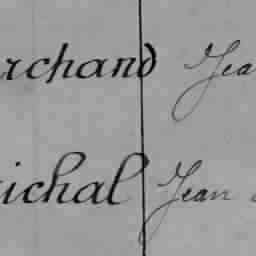 rchand Jea
ichal Jean